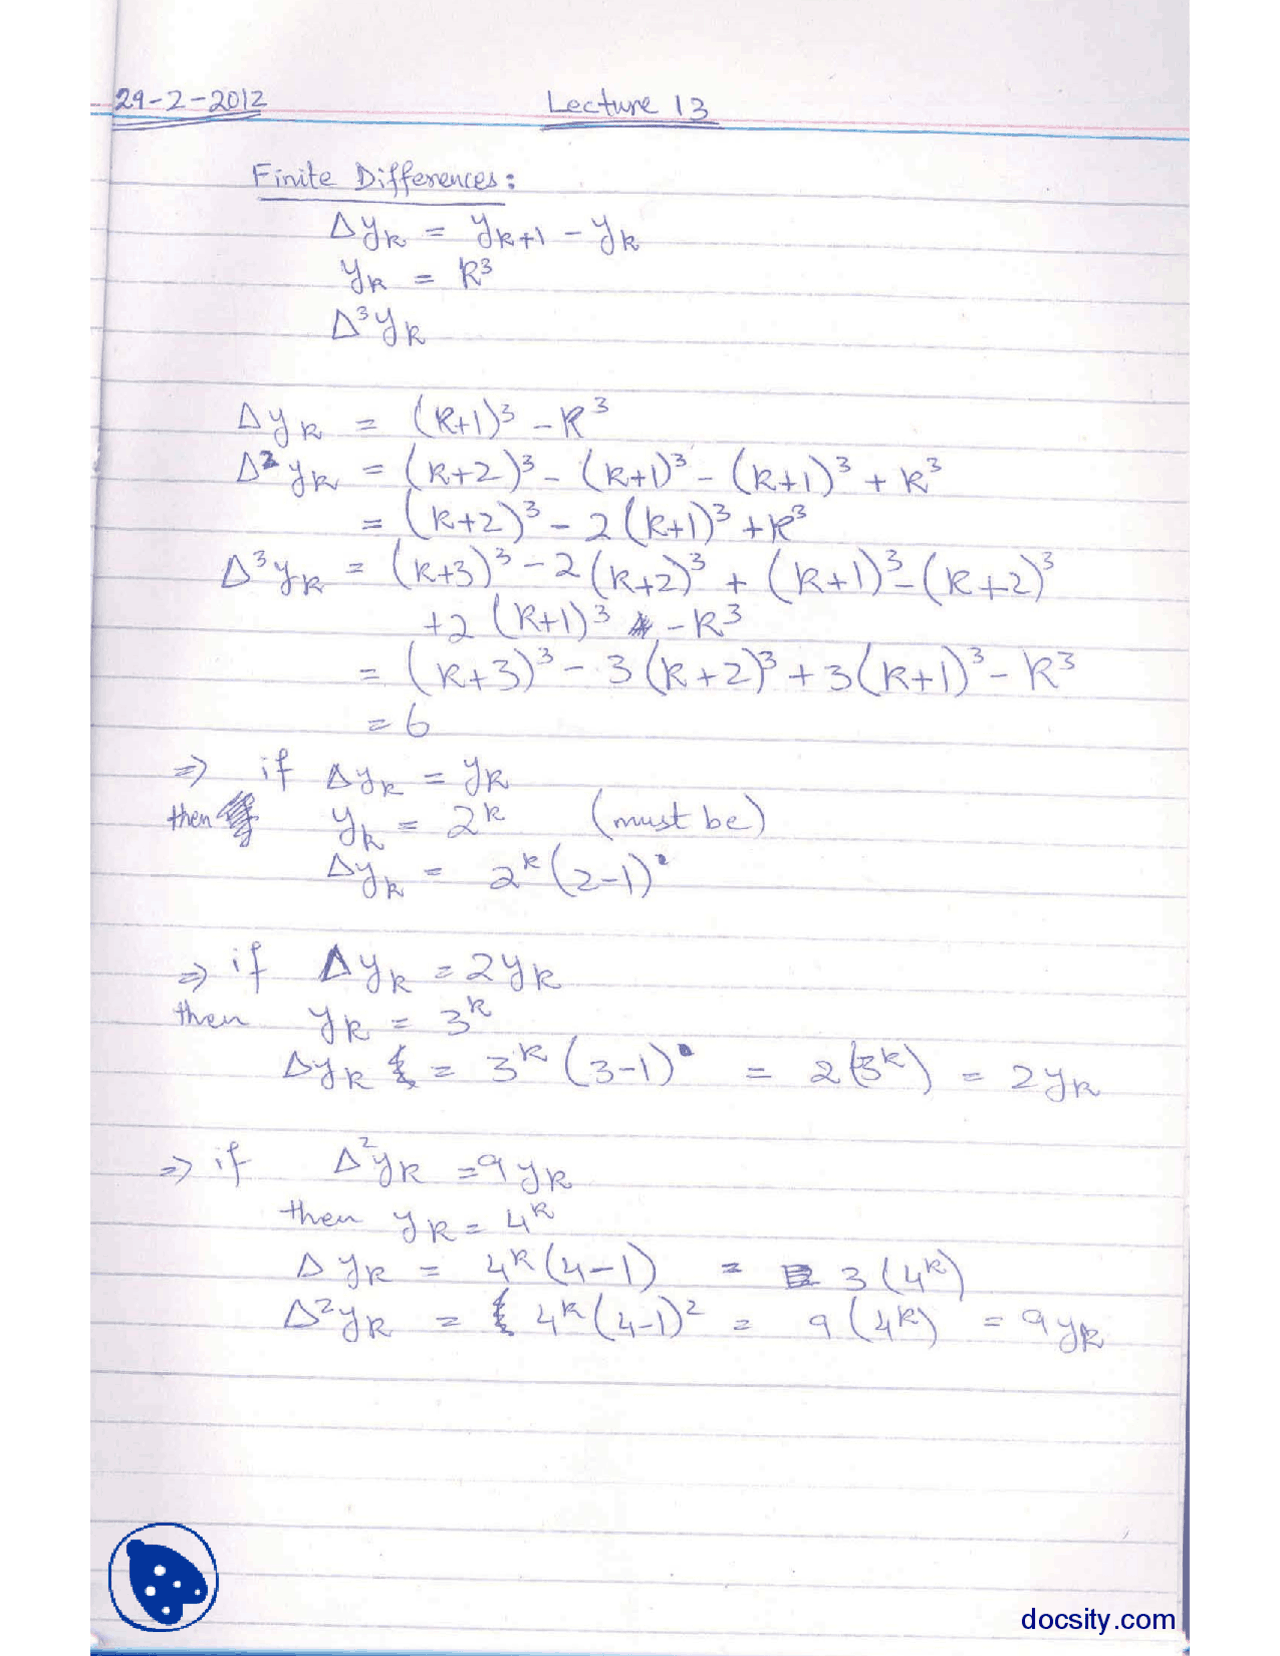 29-2-2012 Lecture 13
Finite Differences:
Δy_k = y_{k+1} - y_k
y_k = k³
Δ³y_k
Δy_k = (k+1)³ - k³
Δ²y_k = (k+2)³ - (k+1)³ - (k+1)³ + k³
= (k+2)³ - 2(k+1)³ + k³
Δ³y_k = (k+3)³ - 2(k+2)³ + (k+1)³ - (k+2)³
+2(k+1)³ - k³
= (k+3)³ - 3(k+2)³ + 3(k+1)³ - k³
= 6
⇒ if Δy_k = y_k
then y_k = 2^k (must be)
Δy_k = 2^k(2-1)
⇒ if Δy_k = 2y_k
then y_k = 3^k
Δy_k = 3^k(3-1) = 2(3^k) = 2y_k
⇒ if Δ²y_k = 9y_k
then y_k = 4^k
Δy_k = 4^k(4-1) = 3(4^k)
Δ²y_k = 4^k(4-1)² = 9(4^k) = 9y_k
docsity.com